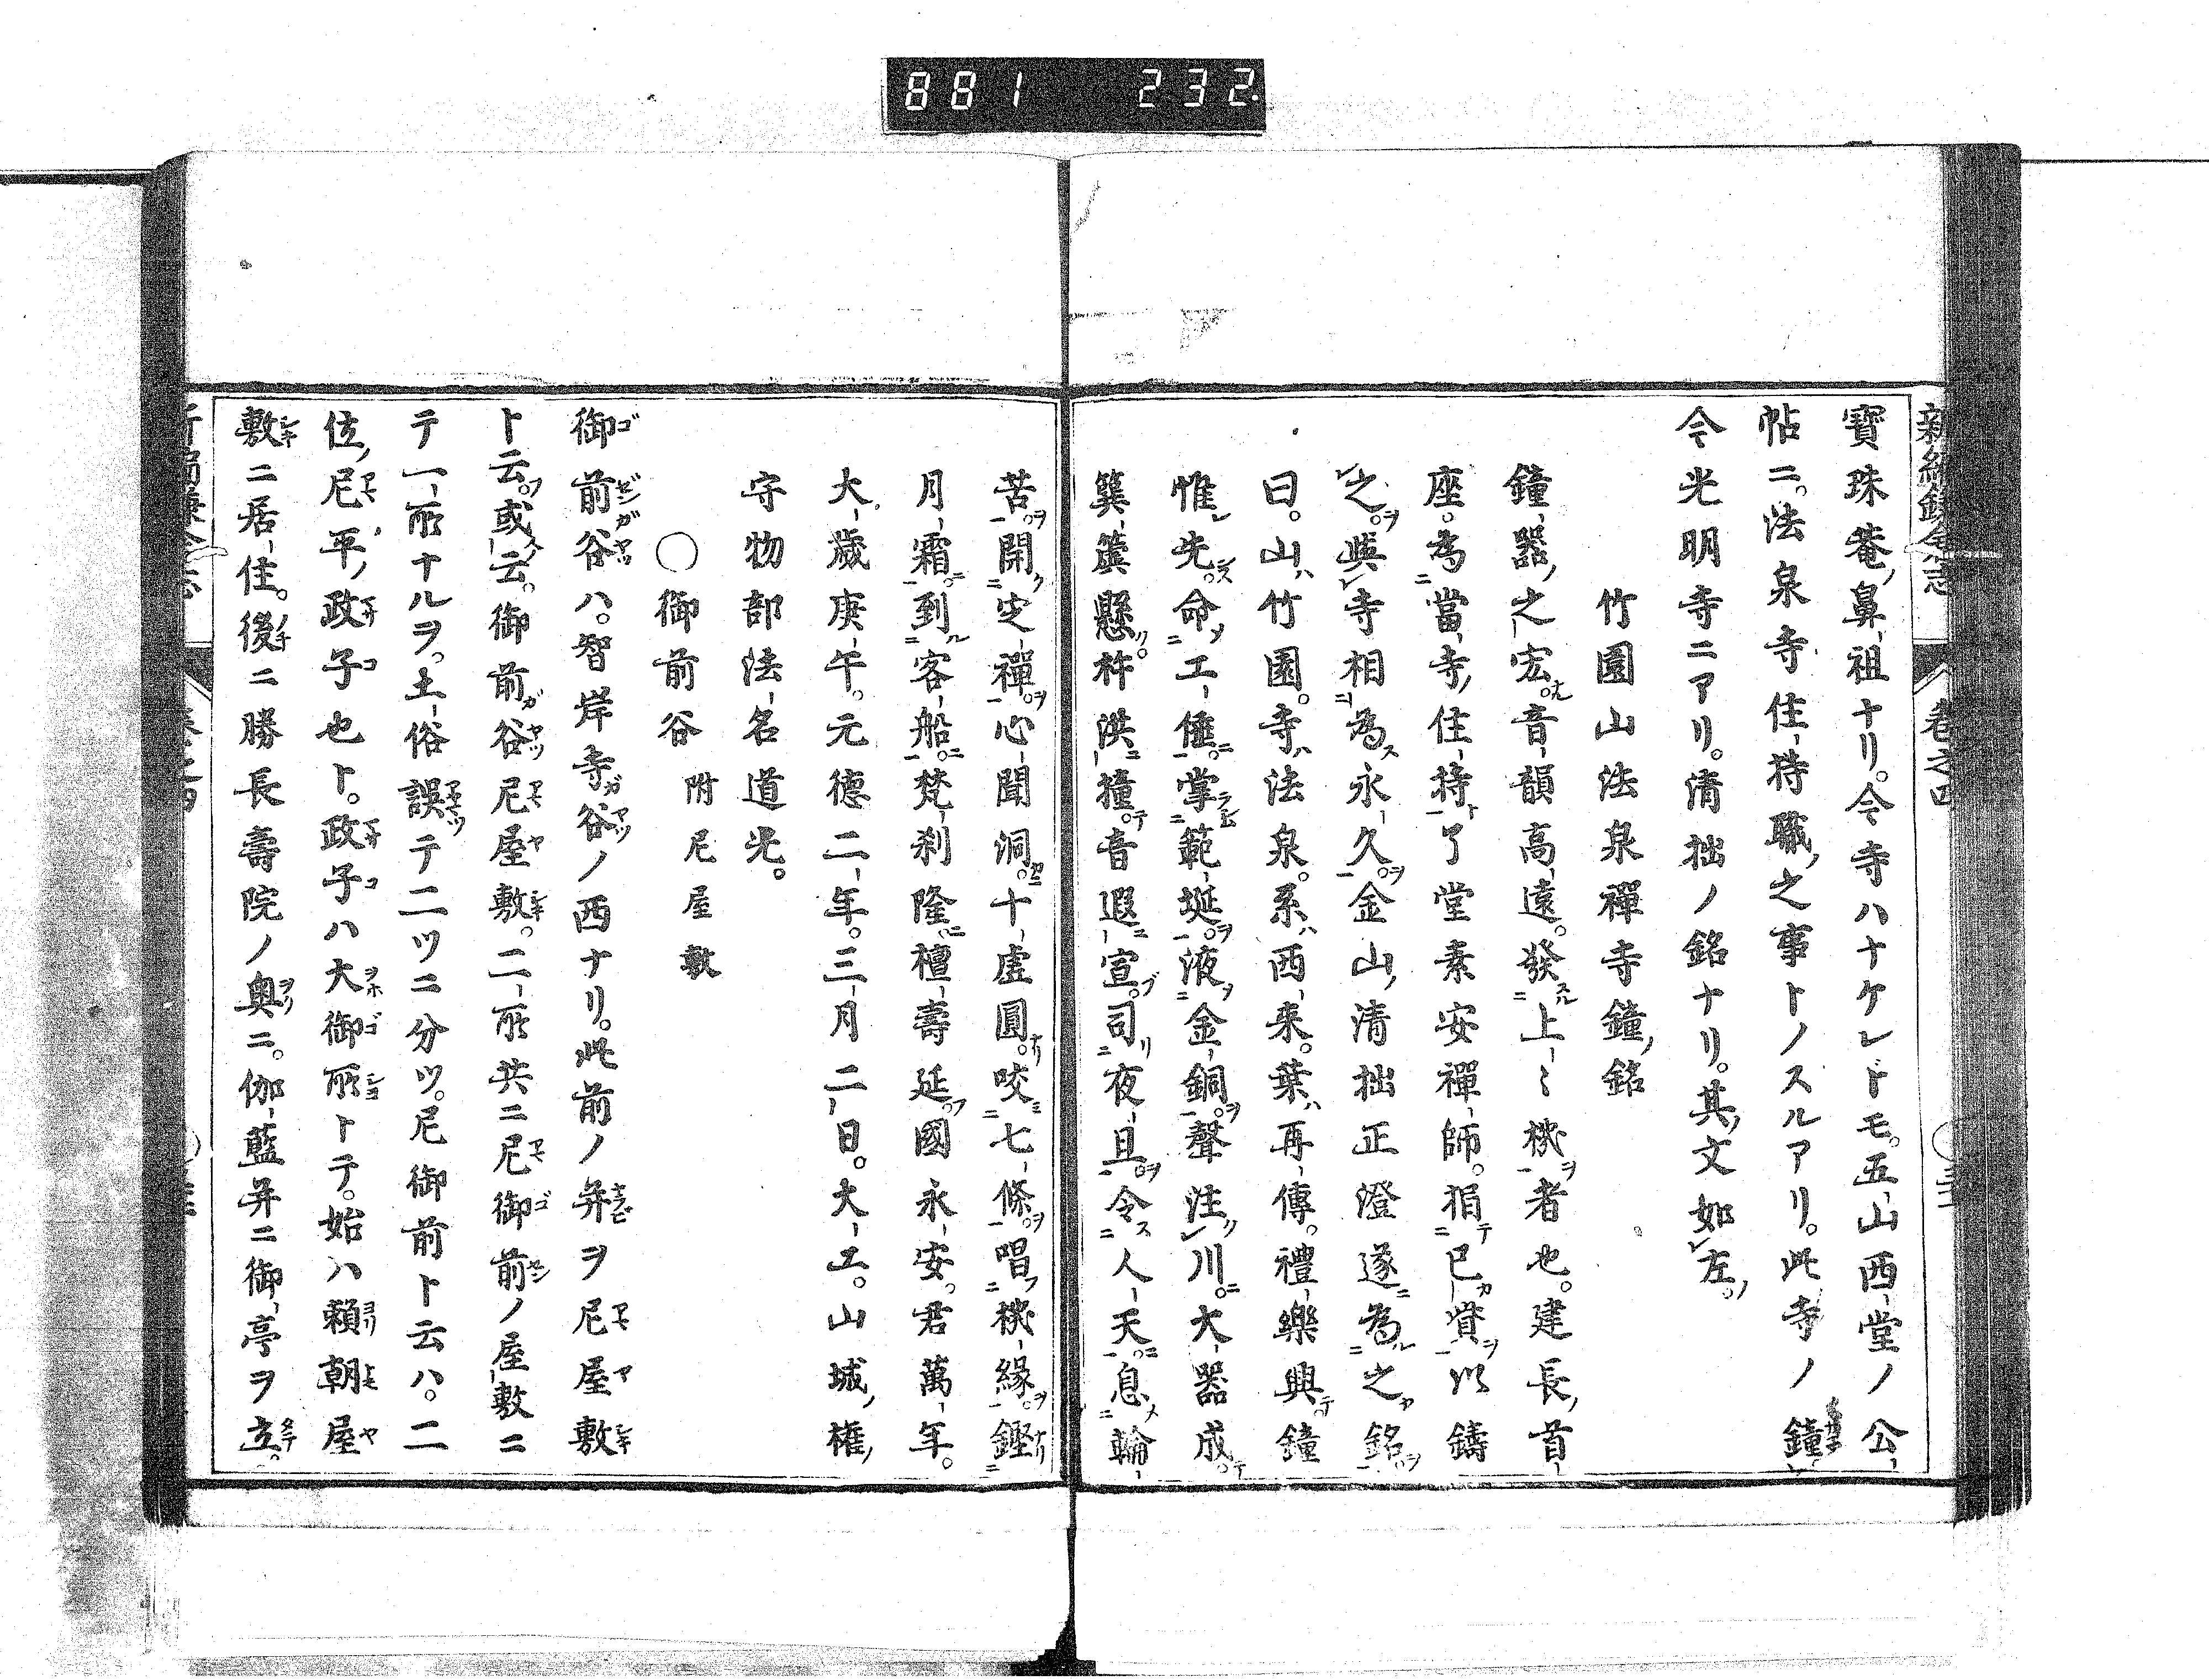 881 232
新編鎌倉志 卷之四
寶珠菴ノ鼻祖ナリ。今寺ハナケレドモ。五山西堂ノ公
帖ニ。法泉寺住持職ノ之事トノスルアリ。此寺ノ鐘
今光明寺ニアリ。清拙ノ銘ナリ。其ノ文如左。
竹園山法泉禪寺鐘ノ銘
鐘器之宏。音韻高遠。發上上機者也。建長首
座。為當寺ノ住持了堂素安禪師。捐己貲以鑄
之。與寺相為永久。金山ノ清拙正澄遂為之銘
曰。山竹園。寺法泉。系西來。葉再傳。禮樂興鐘
惟先。命工倕。掌範埏。液金銅。聲注川。大器成
簨簴懸。杵洪撞。音遐宣。司夜旦。令人天。息輪
苦。開定禪。心聞洞。十虛圓。咬七條。唱機緣。鏗
月霜。到客船。梵刹隆。檀壽延。國永安。君萬年。
大歲庚午。元德二年。三月二日。大工。山城ノ權ノ
守物部法名道光。
○御前谷 附尼屋敷
御前谷ハ。智岸寺谷ノ西ナリ。此前ノ幷ヲ尼屋敷
ト云。或云。御前谷尼屋敷。二所共ニ尼御前ノ屋敷ニ
テ一所ナルヲ。土俗誤テ二ツニ分ツ。尼御前ト云ハ。二
位ノ尼平ノ政子也ト。政子ハ大御所トテ。始ハ賴朝屋
敷ニ居住。後ニ勝長壽院ノ奧ニ。伽藍幷ニ御亭ヲ立。